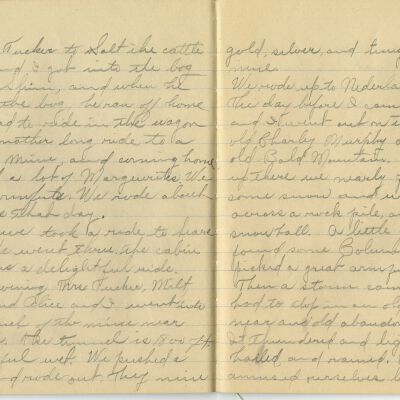 Tucker to Salt the cattle
and I got into the bog
Spinn, and when he
the bog, he ran off home
had to ride in the wagon
another long ride to a
Mine, and coming home
d a lot of Marguerites. We
We rode about
s that day.
we took a ride to
We went thru the cabin
was a delightful ride.
evening Mrs Tucker, Milt
and Alice and I went into
tunnel of the mines near
The tunnel is 1800 ft
ful wet. We pushed a
nd rode out. They mine
gold, silver, and tung
mine.
We rode up to Nederla
The day before I came
and I went out on
old Charley Murphy
old Bald Mountain.
up there we nearly
some snow and w
across a rock slide, an
snowball. A little
found some Columb
picked a great arm
Then a storm cam
had to stop in an ol
near and old abando
It thundered and lig
hailed and rained.
amused ourselves b